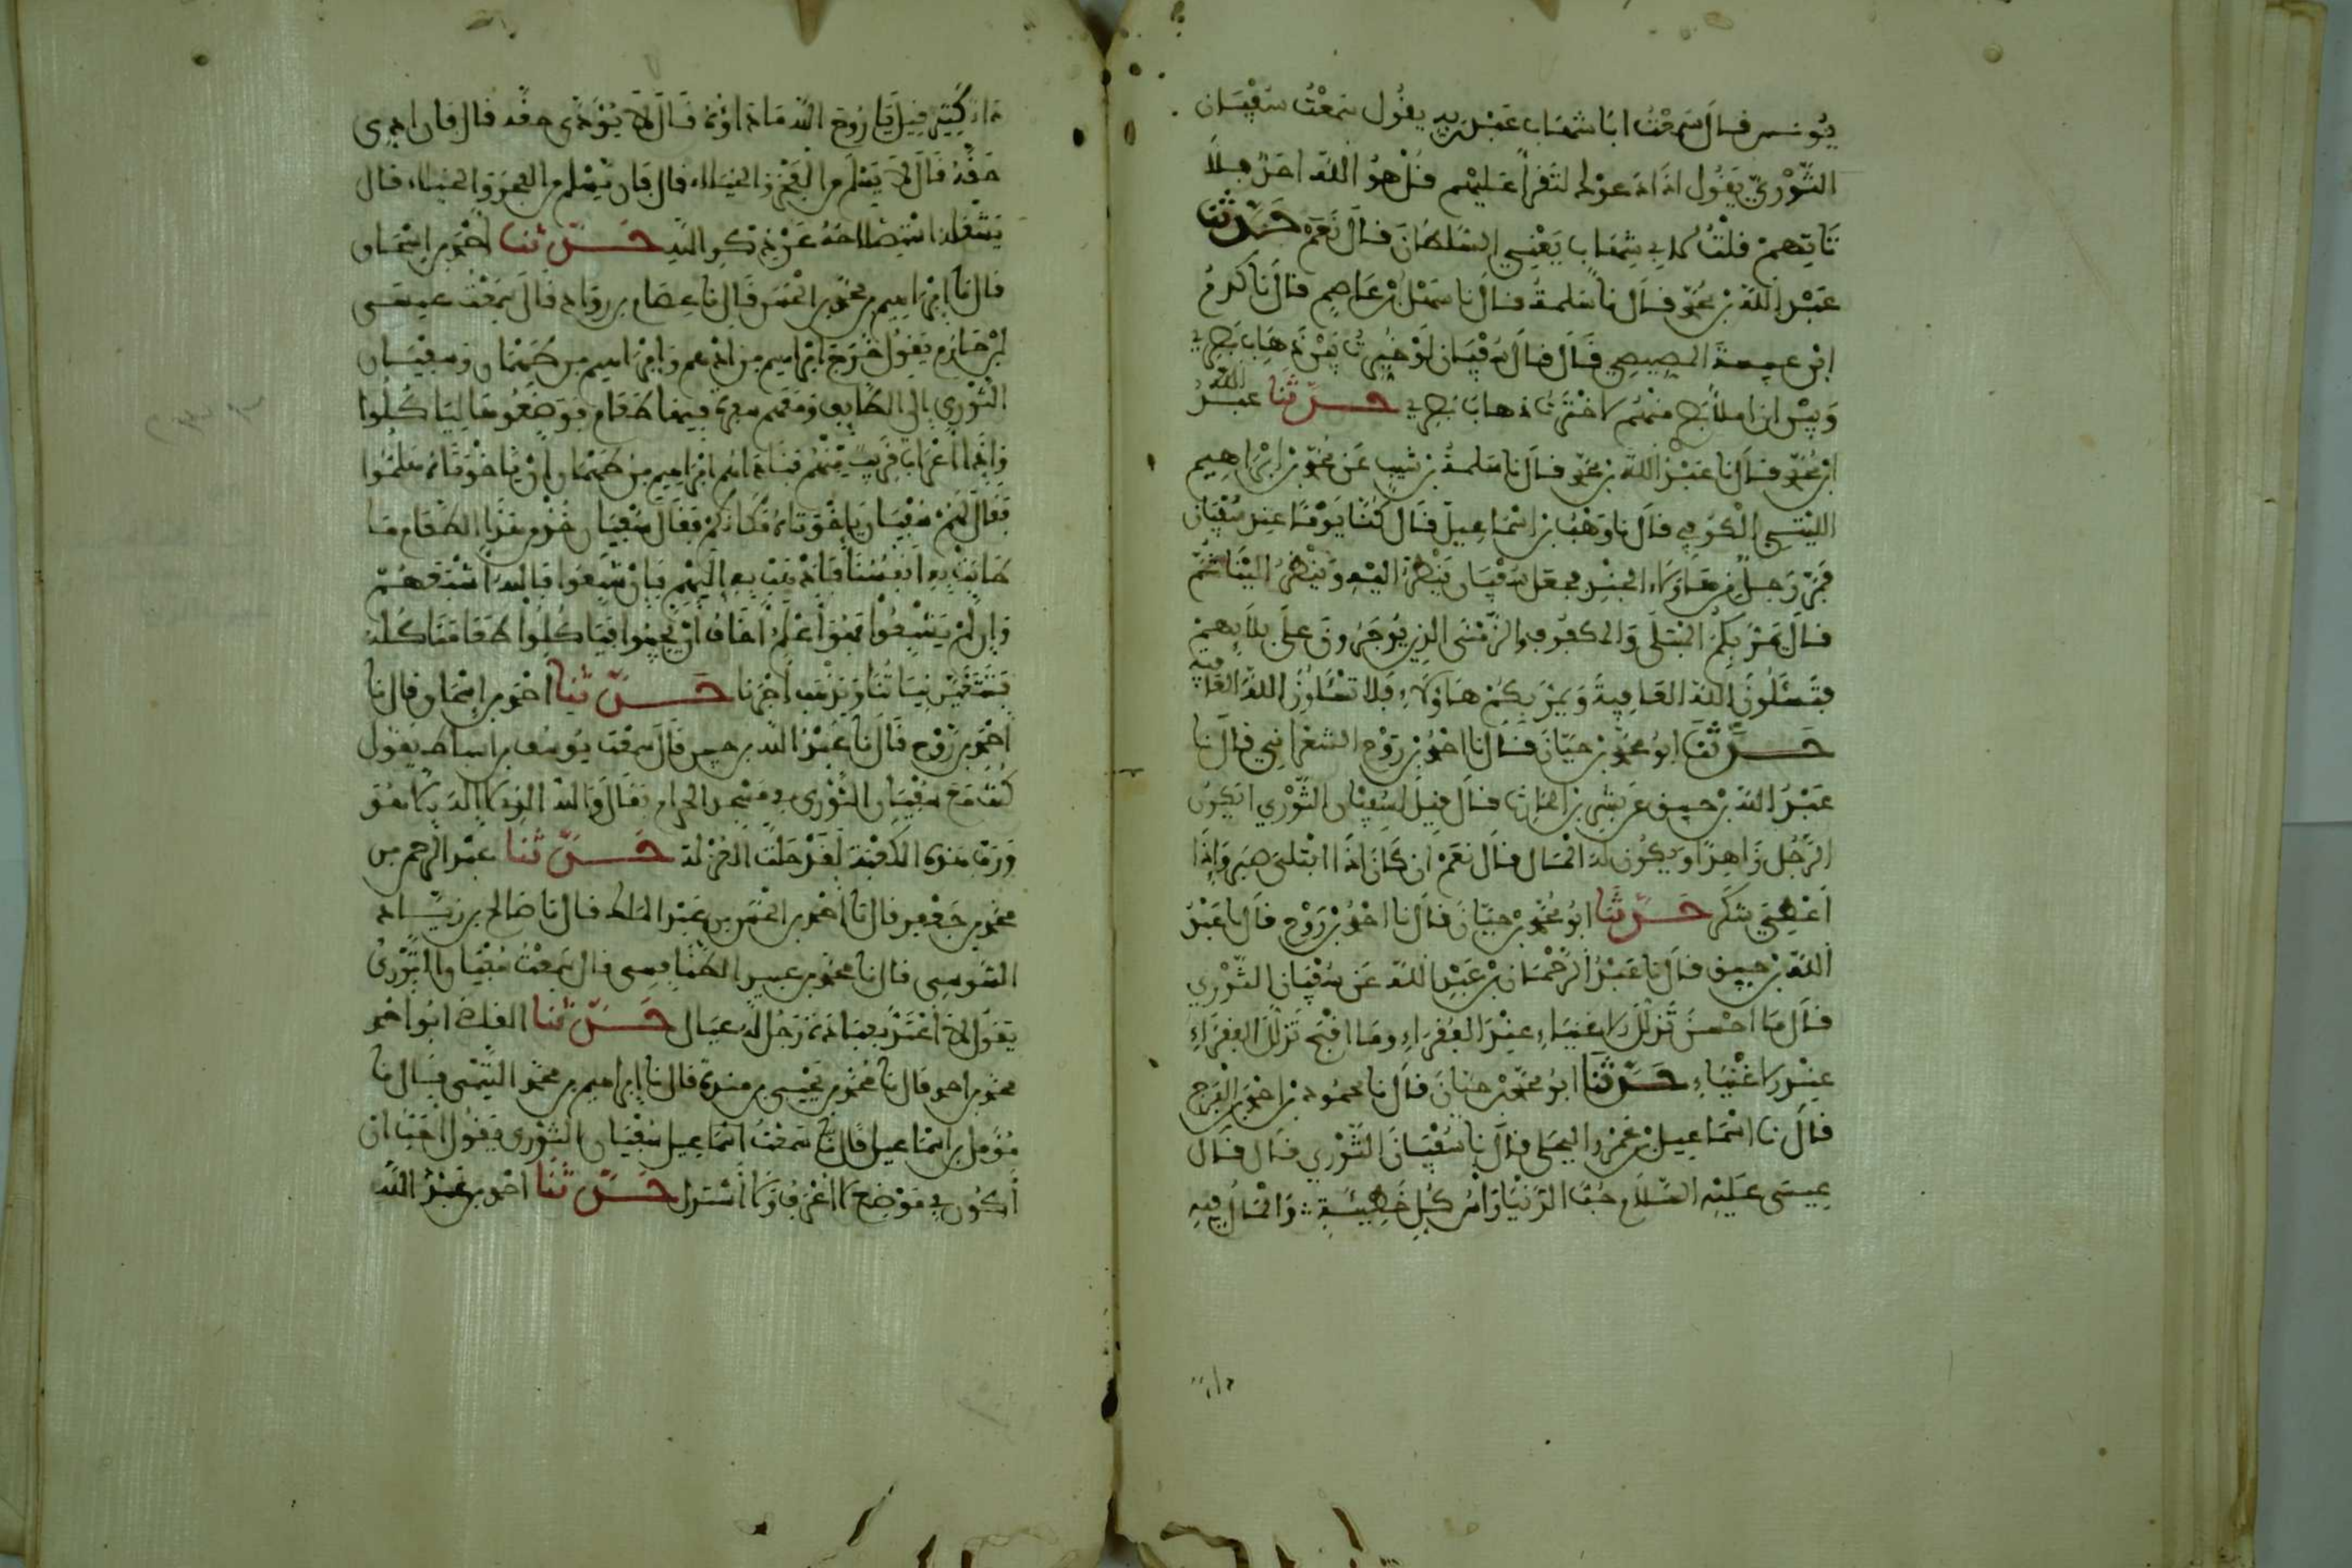 يونس قال سمعت ابا شهاب عبد ربه يقول سمعت سفيان
الثوري يقول اذا دعوك لتقرأ عليهم قل هو الله احد فلا
تاتهم قلت لابي شهاب يعني السلطان قال نعم حدثنا
عبد الله بن محمد قال نا سلمة قال نا سهل بن عاصم قال نا كردم
ابن عبسة المصيصي قال قال سفيان لو خيرت بين ذهاب بصري
وبين ان املأ بصري منهم لاخترت ذهاب بصري حدثنا عبد الله
ابن محمد قال نا عبد الله بن محمد قال نا سلمة بن شبيب عن محمد بن ابراهيم
الليثي الكوفي قال نا وهب بن اسماعيل قال كنا يوما عند سفيان
فمر رجل من هاولاء الجند فجعل سفيان ينظر اليه وينظر الينا ثم
قال يمر بكم المبتلى والمكفوف والزمنى الذي يوجرون على بلائهم
فتسئلون الله العافية ويمر بكم هاولاء فلا تسئلون الله العافية
حدثنا ابو محمد بن حيان قال نا احمد بن روح الشعراني قال نا
عبد الله بن خبيق عن بشر بن الحارث قال قيل لسفيان الثوري ايكون
الرجل زاهدا ويكون له المال قال نعم ان كان اذا ابتلي صبر واذا
اعطي شكر حدثنا ابو محمد بن حيان قال نا احمد بن روح قال نا عبد
الله بن خبيق قال نا عبد الرحمان بن عبد الله عن سفيان الثوري
قال ما احسن تذلل الاغنياء عند الفقراء وما اقبح تذلل الفقراء
عند الاغنياء حدثنا ابو محمد بن حيان قال نا محمود بن احمد بن الفرج
قال نا اسماعيل بن عمرو البجلي قال نا سفيان الثوري قال قال
عيسى عليه السلام حب الدنيا راس كل خطيئة والمال فيه
داء كثير قيل يا روح الله ما داؤه قال لا يؤدى حقه قال فان ادي
حقه قال لا يسلم من الفخر والخيلاء قال فان سلم من الفخر والخيلاء قال
يشغله استصلاحه عن ذكر الله حدثنا احمد بن اسحاق
قال نا ابراهيم بن محمد بن الحسن قال نا عصام بن رواد قال سمعت عيسى
ابن حازم يقول خرج ابراهيم بن ادهم وابراهيم بن طهمان وسفيان
الثوري الى الطايف ومعهم سفرة فيها طعام فوضعوها لياكلوا
واذا اعراب قريب منهم فناداهم ابراهيم بن طهمان ان يا اخوتاه هلموا
فقال لهم سفيان يا اخوتاه مكانكم فقال سفيان خذ من هذا الطعام ما
طابت به انفسنا فاذهب به اليهم فان شبعوا فالله اشبعهم
وان لم يشبعوا فهو اعلم اخاف ان يجيئوا فياكلوا طعامنا كله
فتتغير نياتنا ويذهب اجرنا حدثنا احمد بن اسحاق قال نا
احمد بن روح قال نا عبد الله بن خبيق قال سمعت يوسف بن اسباط يقول
كنت مع سفيان الثوري في مسجد الحرام فقال والله الذي لا اله الا هو
ورب هذه الكعبة لقد حلت العزلة حدثنا عبد الرحمن بن
محمد بن جعفر قال نا احمد بن الحسن بن عبد الملك قال نا صالح بن زياد
السوسي قال نا محمد بن عبيد الطنافسي قال سمعت سفيان الثوري
يقول لا اعتد بعبادة رجل له عيال حدثنا القاضي ابو احمد
محمد بن احمد قال نا محمد بن يحيى بن منده قال نا ابراهيم بن محمد التيمي قال نا
مؤمل بن اسماعيل قال سمعت سفيان الثوري يقول احب ان
اكون في موضع لا اعرف ولا استذل حدثنا احمد بن عبد الله